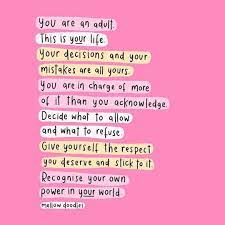 You are an adult.
This is your life.
Your decisions and your
mistakes are all yours.
You are in charge of more
of it than you acknowledge.
Decide what to allow
and what to refuse.
Give yourself the respect
you deserve and stick to it.
Recognise your own
power in your world.
mellow doodles